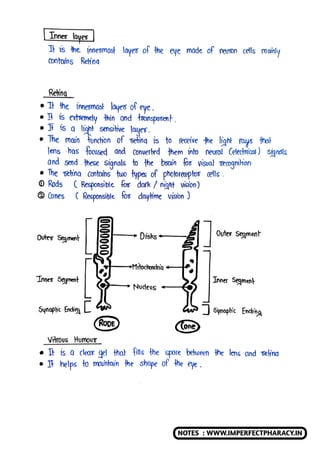 Inner layer
It is the innermost layer of the eye made of neuron cells mainly
contains Retina
Retina
• It the innermost layer of eye.
• It is extremely thin and transparent.
• It is a light sensitive layer.
• The main function of retina is to receive the light rays that
lens has focused and converted them into neural (electrical) signals
and send these signals to the brain for visual recognition
• The retina contains two types of photoreceptor cells.
① Rods ( Responsible for dark / night vision)
② Cones ( Responsible for daytime vision )
Outer Segment
Disks
Outer Segment
Mitochondria
Inner Segment
Nucleus
Inner Segment
Synaptic Ending
Synaptic Ending
RODE
Cone
Vitreous Humour
• It is a clear gel that fills the space between the lens and retina
• It helps to maintain the shape of the eye.
NOTES : WWW.IMPERFECTPHARACY.IN